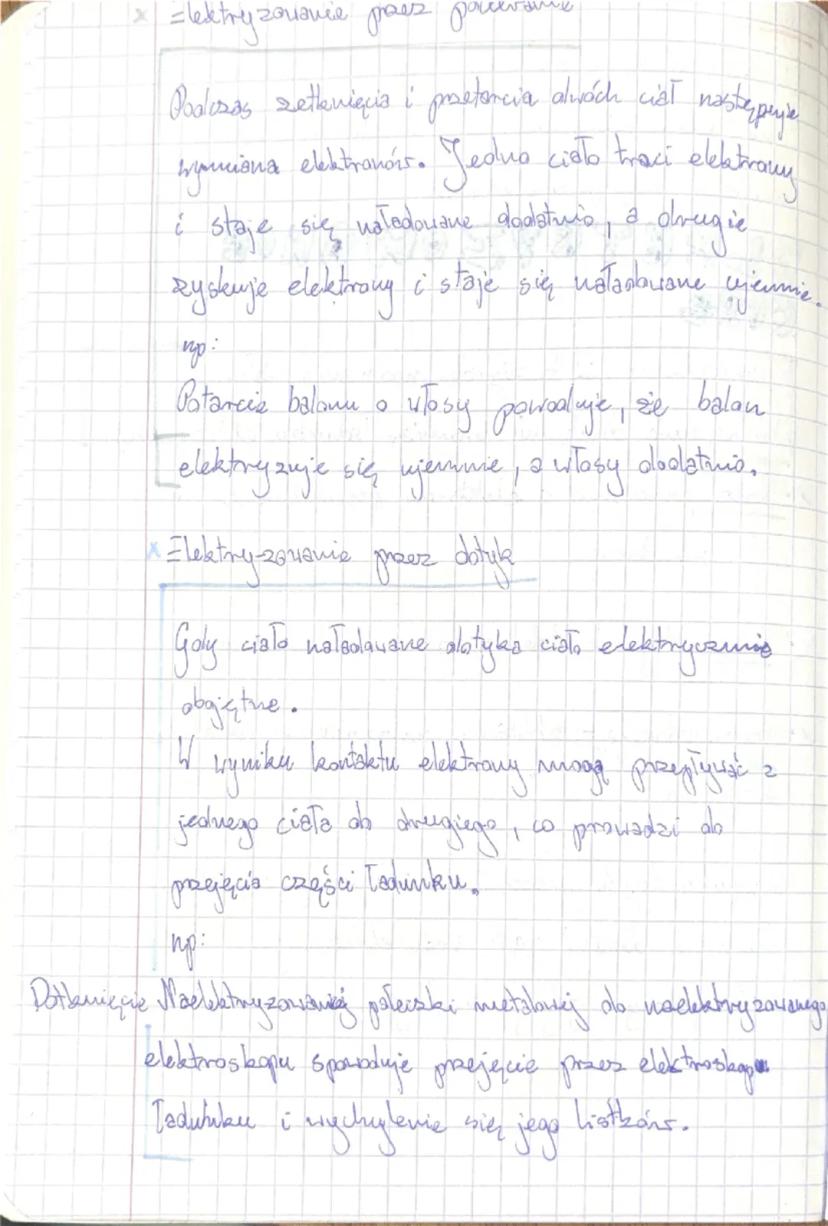 x Elektryzowanie przez pocieranie
Podczas zetknięcia i przetarcia dwóch ciał następuje
wymiana elektronów. Jedno ciało traci elektrony
i staje się naładowane dodatnio, a drugie
zyskuje elektrony i staje się naładowane ujemnie.
np:
Potarcie balonu o włosy powoduje, że balon
elektryzuje się ujemnie, a włosy dodatnio.
x Elektry-zowanie przez dotyk
Gdy ciało naładowane dotyka ciało elektrycznie
obojętne.
W wyniku kontaktu elektrony mogą przepływać z
jednego ciała do drugiego, co prowadzi do
przejęcia części ładunku.
np:
Dotknięcie Naelektryzowanej pałeczki metalowej do naelektryzowanego
elektroskopu spowoduje przejęcie przez elektroskop
ładunku i wychylenie się jego listków.